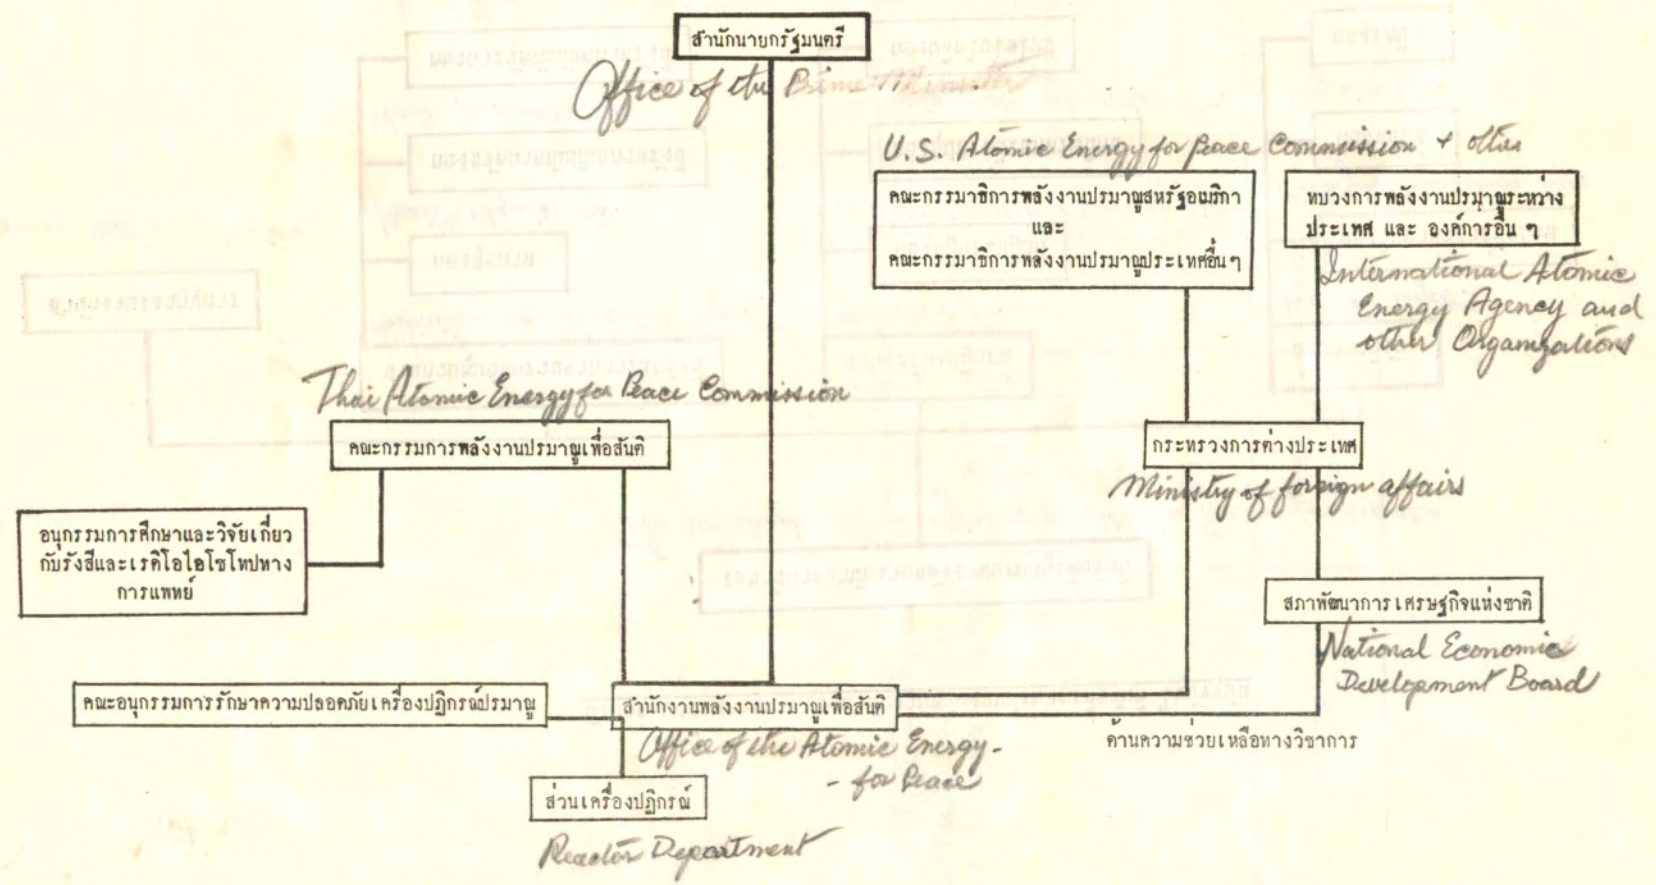 สำนักนายกรัฐมนตรี
Office of the Prime Minister
U.S. Atomic Energy for peace Commission + other
คณะกรรมาธิการพลังงานปรมาณูสหรัฐอเมริกา
และ
คณะกรรมาธิการพลังงานปรมาณูประเทศอื่นๆ
ทบวงการพลังงานปรมาณูระหว่าง
ประเทศ และ องค์การอื่น ๆ
International Atomic
Energy Agency and
other Organizations
Thai Atomic Energy for Peace Commission
คณะกรรมการพลังงานปรมาณูเพื่อสันติ
กระทรวงการต่างประเทศ
Ministry of foreign affairs
อนุกรรมการศึกษาและวิจัยเกี่ยว
กับรังสีและเรดิโอไอโซโทปทาง
การแพทย์
สภาพัฒนาการเศรษฐกิจแห่งชาติ
National Economic
Development Board
คณะอนุกรรมการรักษาความปลอดภัยเครื่องปฏิกรณ์ปรมาณู
สำนักงานพลังงานปรมาณูเพื่อสันติ
Office of the Atomic Energy -
- for Peace
ด้านความช่วยเหลือทางวิชาการ
ส่วนเครื่องปฏิกรณ์
Reactor Department